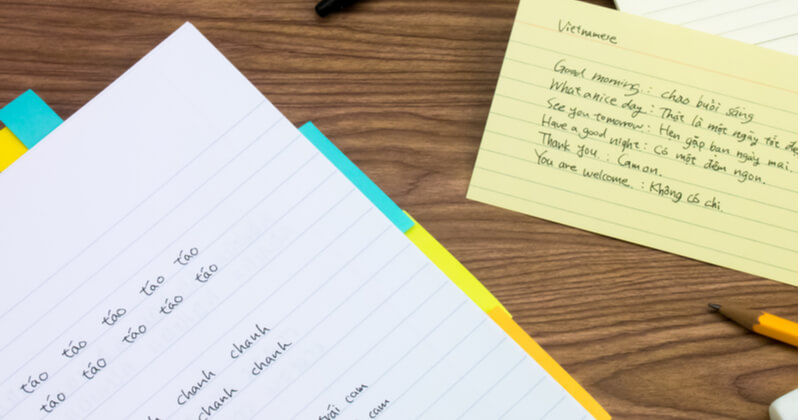 Vietnamese
Good morning. : chao buòi sáng
What a nice day : Thót là một ngày tốt
See you tomorrow : Hẹn gặp ban ngày mai.
Have a good night : Có một đêm ngon.
Thank you. : Cam on.
You are welcome. : Không có chi.
táo táo táo táo táo
táo táo táo táo táo
chanh chanh
chanh chanh
trái cam
cam